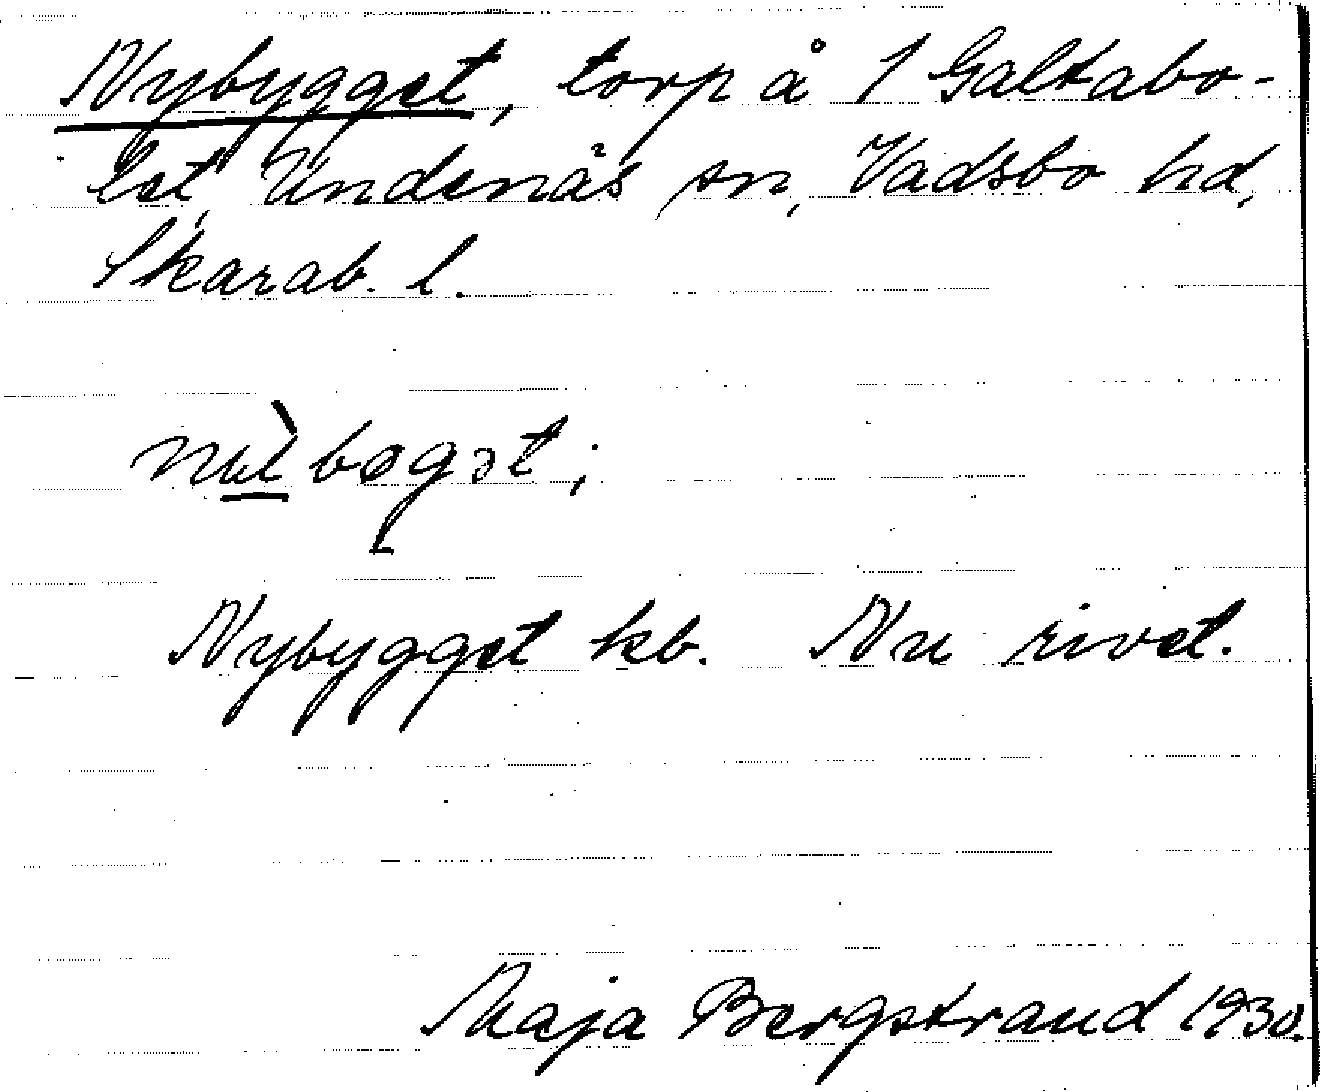 Nybygget, torp å 1 Galtabo-
let, Undenäs sn, Vadsbo hd,
Skarab. l.
Nybygget kb. Nu rivet.
Maja Bergstrand 1930.